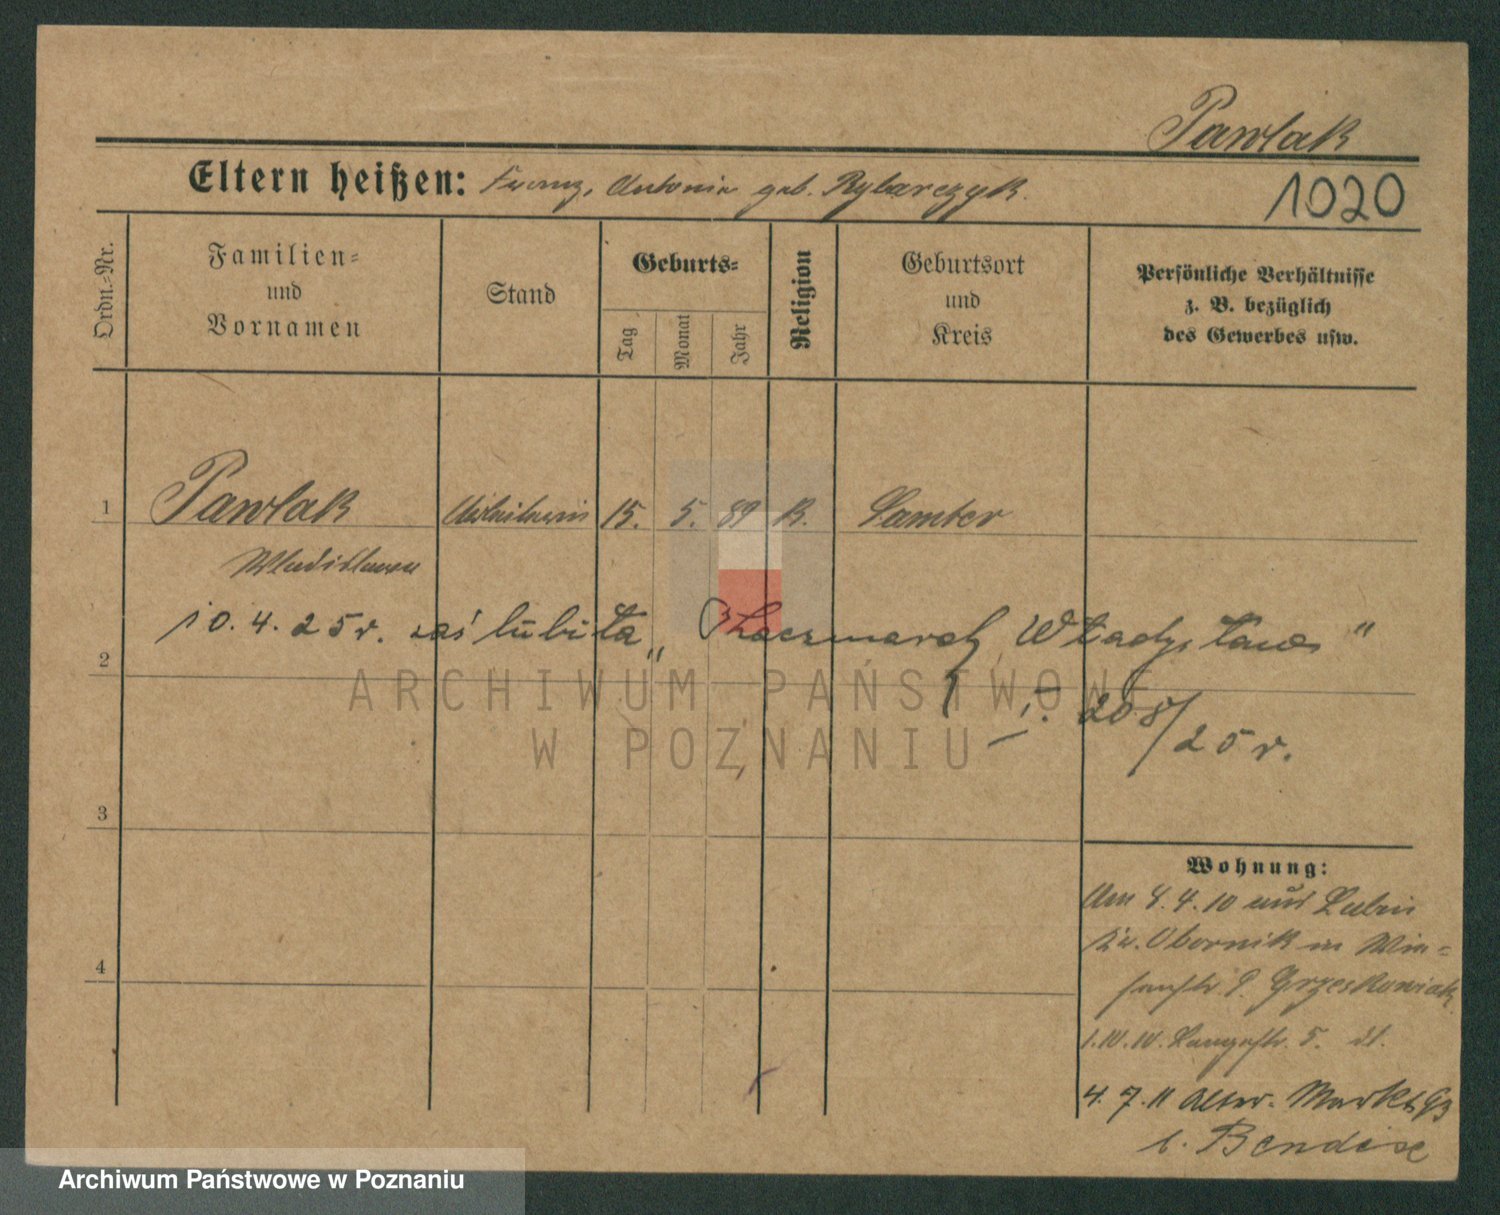 Pawlak
Eltern heißen: Franz, Antonie geb. Rybarczyk.
1020
Ordn.-Nr.
Familien-
und
Vornamen
Stand
Geburts-
Tag
Monat
Jahr
Religion
Geburtsort
und
Kreis
Persönliche Verhältnisse
z. B. bezüglich
des Gewerbes usw.
1 Pawlak Arbeiterin 15. 5. 89 K. Samter
Wladislawa
10.4.25 r. zaślubiła „Kaczmarek Władysława”
2
20.8/25 r.
3
Wohnung:
Am 4.4.10 aus Lubin
Kr. Obornik in
b. Grzeskowiak
4
1.10.10. Langestr. 5.
4.7.11 Alter Markt 93
b. Bendix
ARCHIWUM PAŃSTWOWE
W POZNANIU
Archiwum Państwowe w Poznaniu